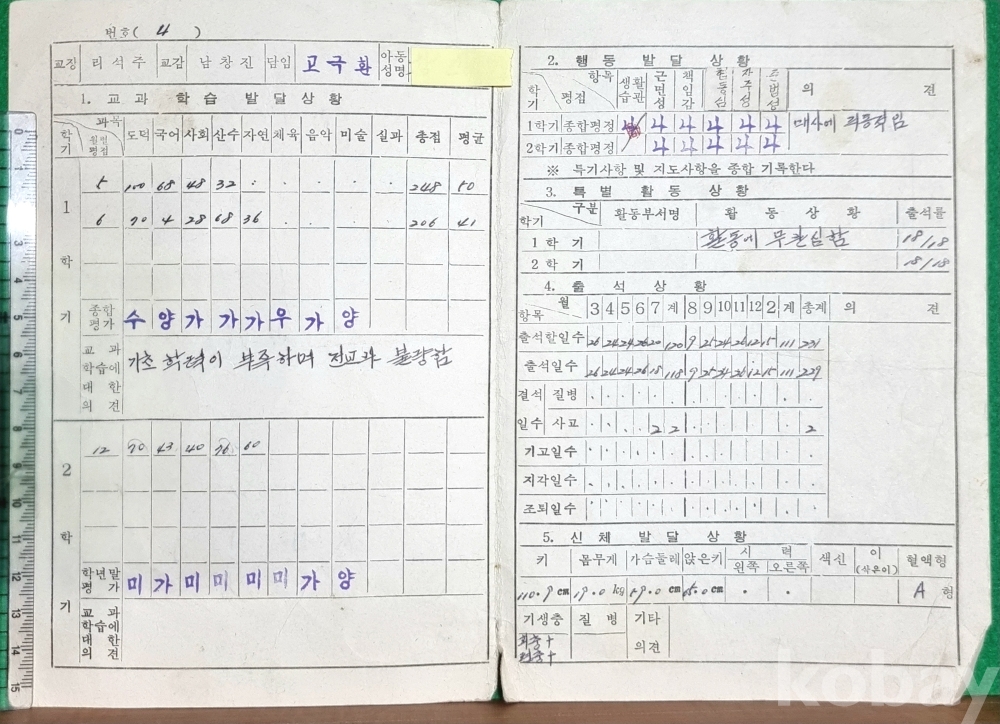 번호( 4 )
교장 리석주 교감 남창진 담임 고국환 아동성명
1. 교과 학습 발달상황
학기 과목 월별평점 도덕 국어 사회 산수 자연 체육 음악 미술 실과 총점 평균
1학기
5 100 68 48 32 248 50
6 70 4 28 68 36 206 41
종합평가 수 양 가 가 가 우 가 양
교과학습에 대한 의견 기초 학력이 부족하며 전교과 불량함
2학기
12 70 43 40 76 60
학년말평가 미 가 미 미 미 미 가 양
교과학습에 대한 의견
2. 행동 발달 상황
학기 항목 평점 생활습관 근면성 책임감 협동심 자주성 준법성 의견
1학기 종합평정 나 나 나 나 나 매사에 피동적임
2학기 종합평정 나 나 나 나 나
※ 특기사항 및 지도사항을 종합 기록한다
3. 특별 활동 상황
학기 구분 활동부서명 활동상황 출석률
1학기 활동에 무관심함 18/18
2학기 18/18
4. 출석상황
항목 월 3 4 5 6 7 계 8 9 10 11 12 2 계 총계 의견
출석할일수 26 24 24 26 20 120 9 25 24 26 12 15 111 231
출석일수 26 24 24 26 18 118 9 25 24 26 12 15 111 229
결석일수 질병
사고 2 2 2
기고일수
지각일수
조퇴일수
5. 신체 발달 상황
키 몸무게 가슴둘레 앉은키 시력 왼쪽 오른쪽 색신 이 (삭은이) 혈액형
110.9cm 19.0kg 59.0cm 65.0cm A형
기생충 질병 기타의견
회충+
편충+
0 1 2 3 4 5 6 7 8 9 10 11 12 13 14 15
kobay